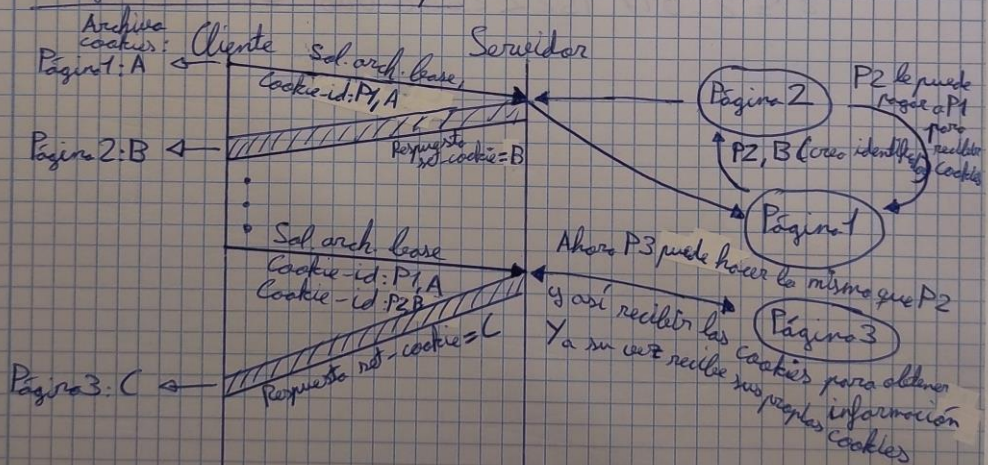 Archivo
cookies:
Cliente
Servidor
Página1: A
Sol. arch. base,
Cookie-id: P1, A
Página 2
P2 le puede
pagar a P1
para
recibir
cookies
Página 2: B
Respuesta
set-cookie = B
P2, B (creo
Página 1
Sol. arch. base
Cookie-id: P1, A
Cookie-id: P2 B
Ahora P3 puede hacer lo mismo que P2
y así recibir las cookies para obtener
información
Página 3
Y a su vez recibe sus propias
cookies
Página 3: C
Respuesta set-cookie = C